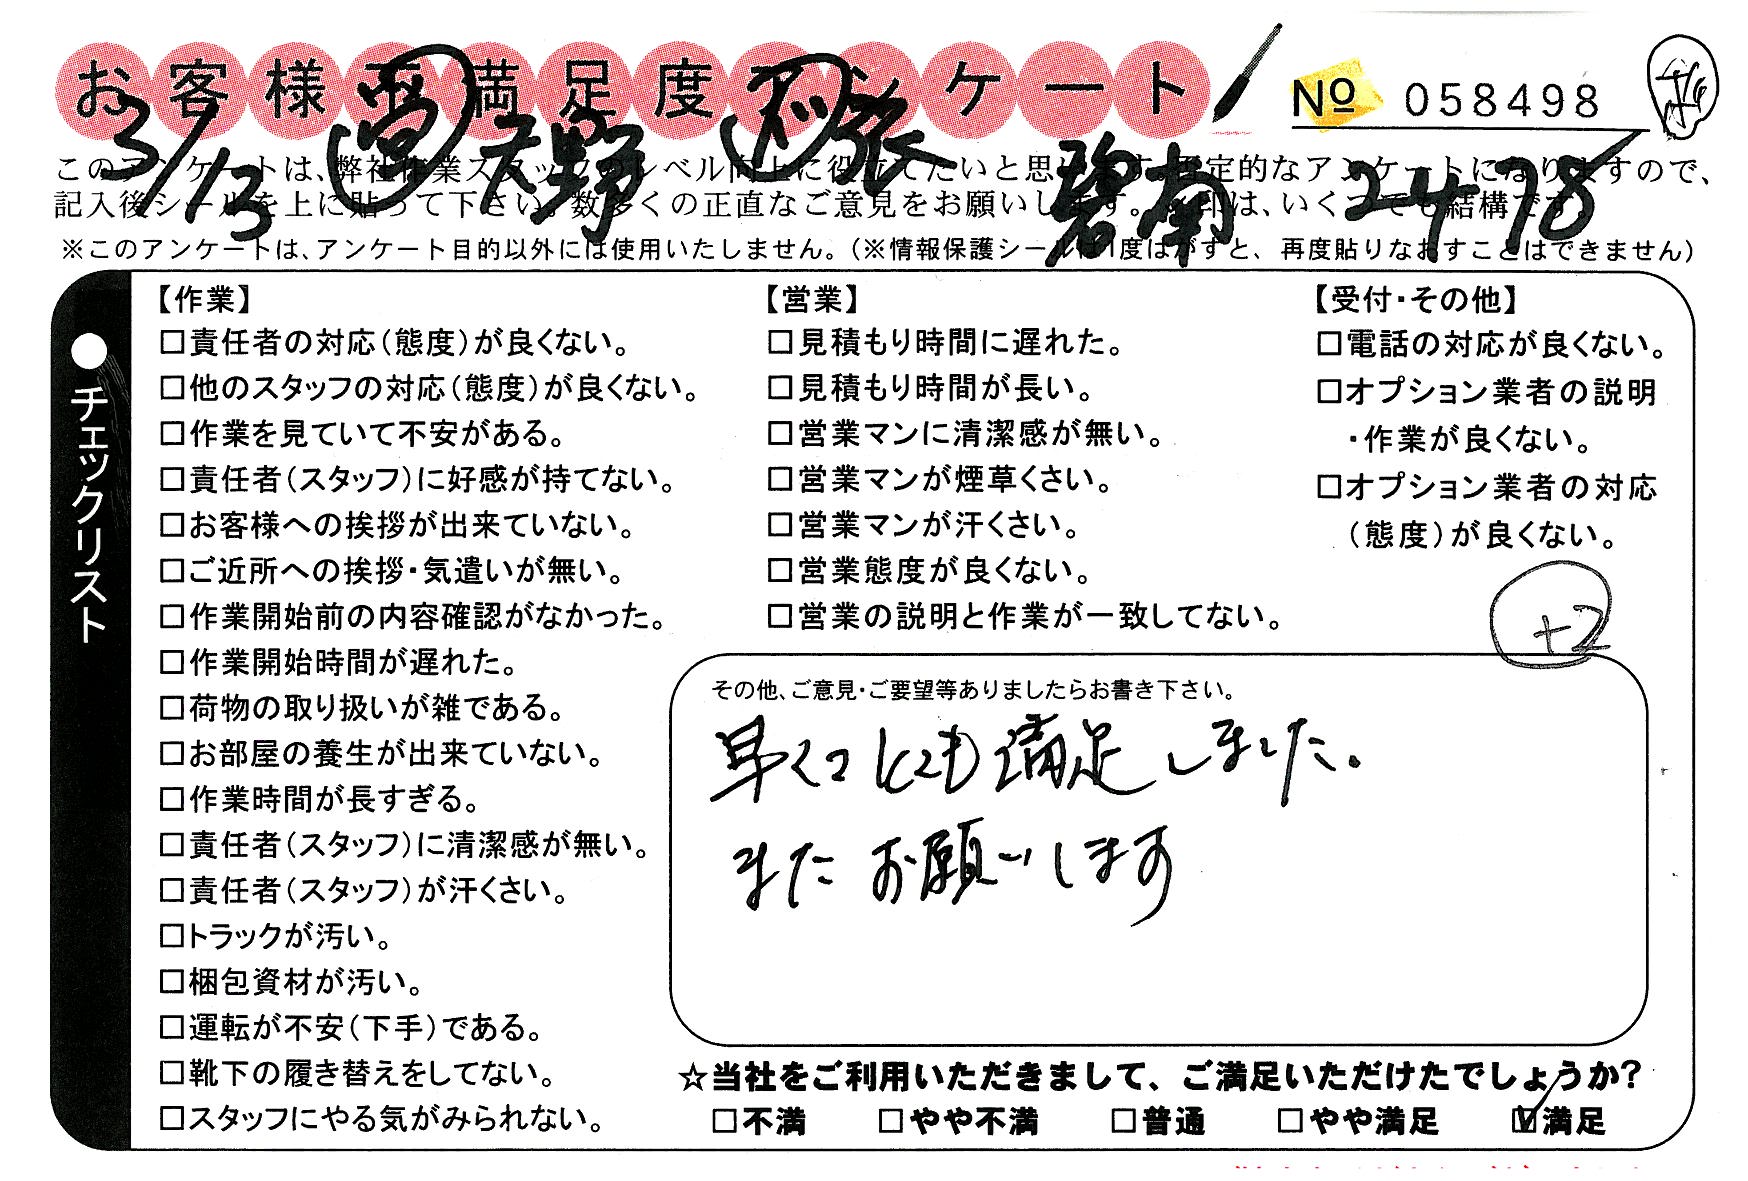 お客様の満足度アンケート
№ 058498
3/13 営 大野 碧南 24-78
このアンケートは、弊社作業スタッフのレベル向上に役立てたいと思います。否定的なアンケートになりますので、
記入後シールを上に貼って下さい。数多くの正直なご意見をお願いします。レ印は、いくつでも結構です。
※このアンケートは、アンケート目的以外には使用いたしません。（※情報保護シールは1度はがすと、再度貼りなおすことはできません）
●チェックリスト
【作業】
□責任者の対応（態度）が良くない。
□他のスタッフの対応（態度）が良くない。
□作業を見ていて不安がある。
□責任者（スタッフ）に好感が持てない。
□お客様への挨拶が出来ていない。
□ご近所への挨拶・気遣いが無い。
□作業開始前の内容確認がなかった。
□作業開始時間が遅れた。
□荷物の取り扱いが雑である。
□お部屋の養生が出来ていない。
□作業時間が長すぎる。
□責任者（スタッフ）に清潔感が無い。
□責任者（スタッフ）が汗くさい。
□トラックが汚い。
□梱包資材が汚い。
□運転が不安（下手）である。
□靴下の履き替えをしてない。
□スタッフにやる気がみられない。
【営業】
□見積もり時間に遅れた。
□見積もり時間が長い。
□営業マンに清潔感が無い。
□営業マンが煙草くさい。
□営業マンが汗くさい。
□営業態度が良くない。
□営業の説明と作業が一致してない。
【受付・その他】
□電話の対応が良くない。
□オプション業者の説明
・作業が良くない。
□オプション業者の対応
（態度）が良くない。
+2
その他、ご意見・ご要望等ありましたらお書き下さい。
早くてとても満足しました。
またお願いします
☆当社をご利用いただきまして、ご満足いただけたでしょうか?
□不満 □やや不満 □普通 □やや満足 ☑満足